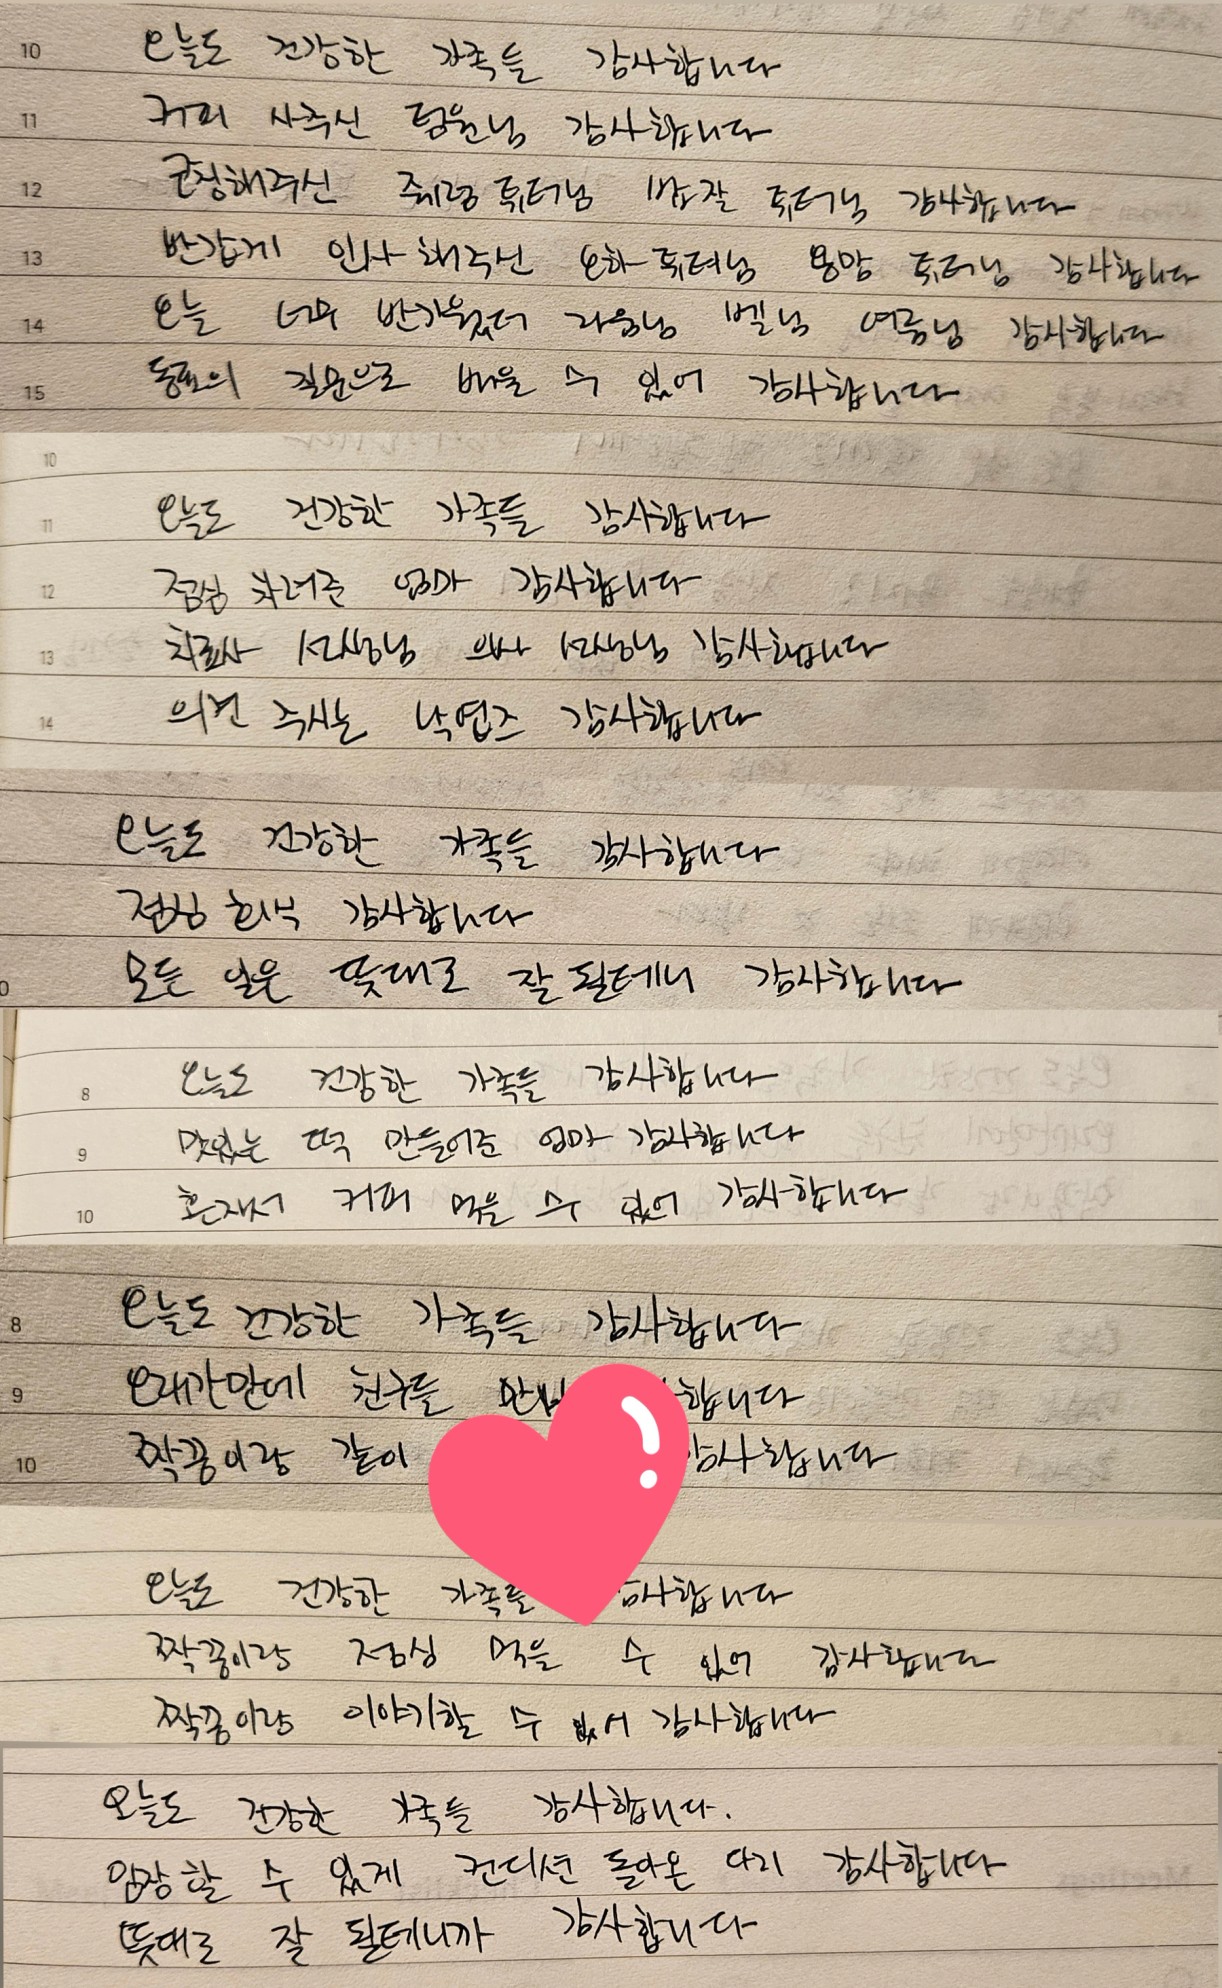 10 오늘도 건강한 가족들 감사합니다
11 커피 사주신 팀원님 감사합니다
12 긍정해주신 쥬령 튜터님 밥잘 튜터님 감사합니다
13 반갑게 인사해주신 오하 튜터님 몽맘 튜터님 감사합니다
14 오늘 너무 반가웠던 라움님 벨님 여름님 감사합니다
15 동료의 질문으로 배울 수 있어 감사합니다
10
11 오늘도 건강한 가족들 감사합니다
12 점심 차려준 엄마 감사합니다
13 치료사 선생님 의사 선생님 감사합니다
14 의견 주시는 낙엽즈 감사합니다
오늘도 건강한 가족들 감사합니다
점심 회식 감사합니다
0 모든 일은 뜻대로 잘 될테니 감사합니다
8 오늘도 건강한 가족들 감사합니다
9 맛있는 떡 만들어준 엄마 감사합니다
10 혼자서 커피 먹을 수 있어 감사합니다
8 오늘도 건강한 가족들 감사합니다
9 오래간만에 친구들 합니다
10 짝꿍이랑 같이 감사합니다
오늘도 건강한 가족들 감사합니다
짝꿍이랑 점심 먹을 수 있어 감사합니다
짝꿍이랑 이야기할 수 있어 감사합니다
오늘도 건강한 가족들 감사합니다.
임장할 수 있게 컨디션 돌아온 다리 감사합니다
뜻대로 잘 될테니까 감사합니다